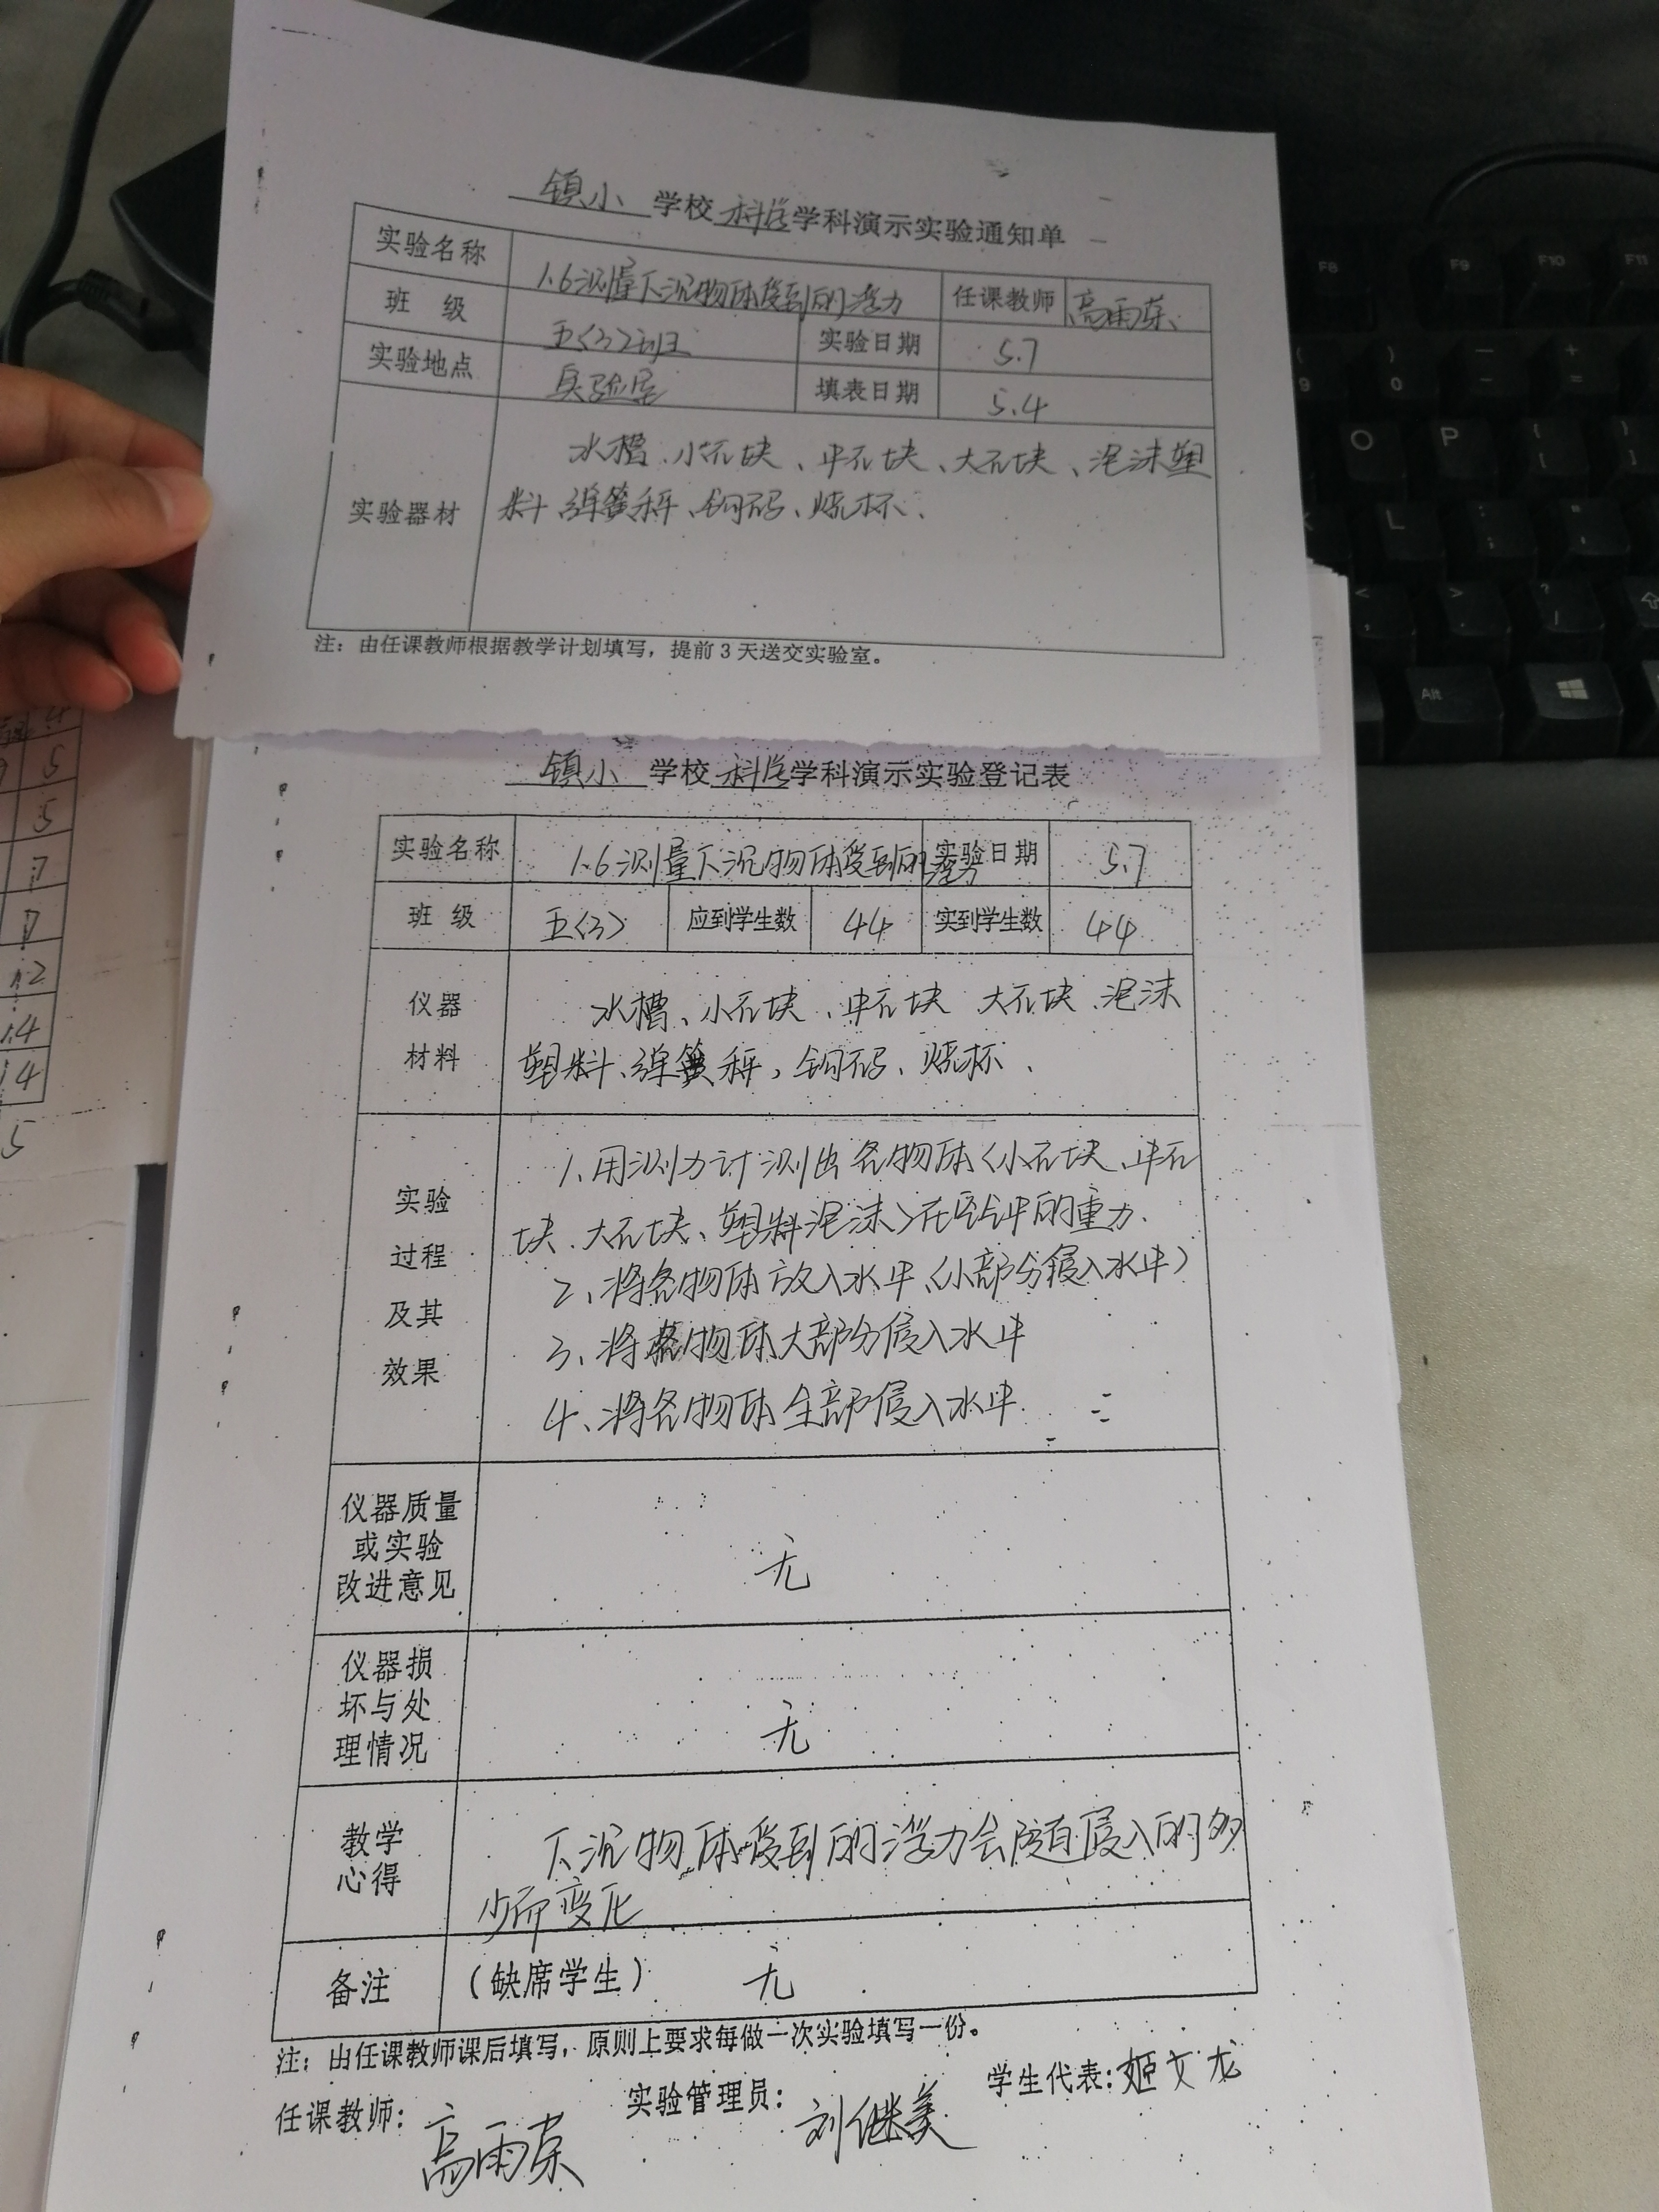 镇小 学校 科学 学科演示实验通知单
实验名称 1.6测量下沉物体受到的浮力 任课教师 高雨荣
班 级 五(3)班 实验日期 5.7
实验地点 实验室 填表日期 5.4
实验器材 水槽、小石块、中石块、大石块、泡沫塑
料、弹簧秤、钩码、烧杯、
注：由任课教师根据教学计划填写，提前 3 天送交实验室。
镇小 学校 科学 学科演示实验登记表
实验名称 1.6测量下沉物体受到的浮力 实验日期 5.7
班 级 五(3) 应到学生数 44 实到学生数 44
仪器
材料
水槽、小石块、中石块 大石块、泡沫
塑料、弹簧秤，钩码、烧杯、
实验
过程
及其
效果
1、用测力计测出各物体(小石块、中石
块、大石块、塑料泡沫)在空气中的重力.
2、将各物体放入水中.(小部分侵入水中)
3、将各物体大部分侵入水中
4、将各物体全部侵入水中.
仪器质量
或实验
改进意见
无
仪器损
坏与处
理情况
无
教学
心得
下沉物体受到的浮力会随着侵入的多
少而变化
备注 (缺席学生) 无
注：由任课教师课后填写，原则上要求每做一次实验填写一份。
任课教师：高雨荣 实验管理员：刘继美 学生代表：姬文龙
F8 F9 F10 F11
9 ) 0 — - + =
O P { [ } ]
L : ; " '
< , > . ? /
Alt
4
5
5
7
7
12
14
14
5